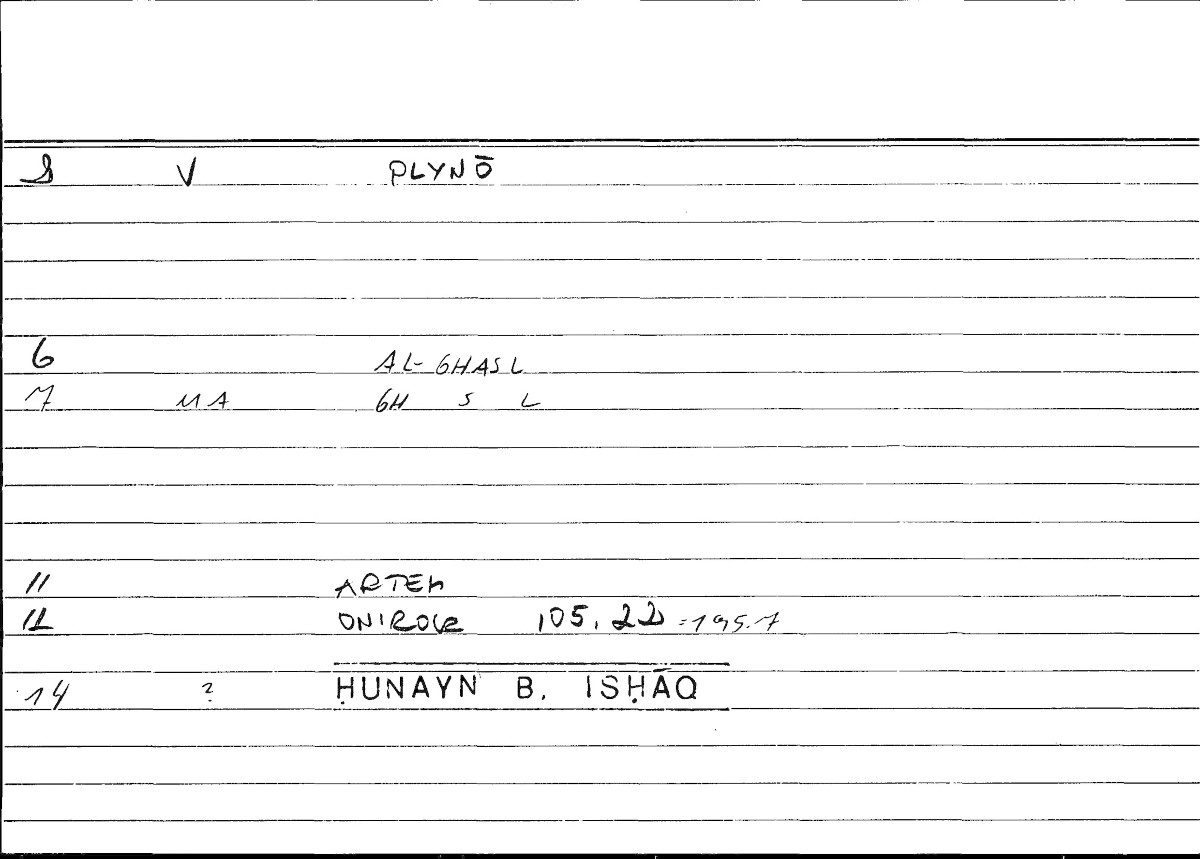 8 V PLYNŌ
6 AL-GHASL
7 MA GH S L
11 ARTEM
12 ONIROCR 105,22 =195.7
14 ? ḤUNAYN B. ISḤĀQ